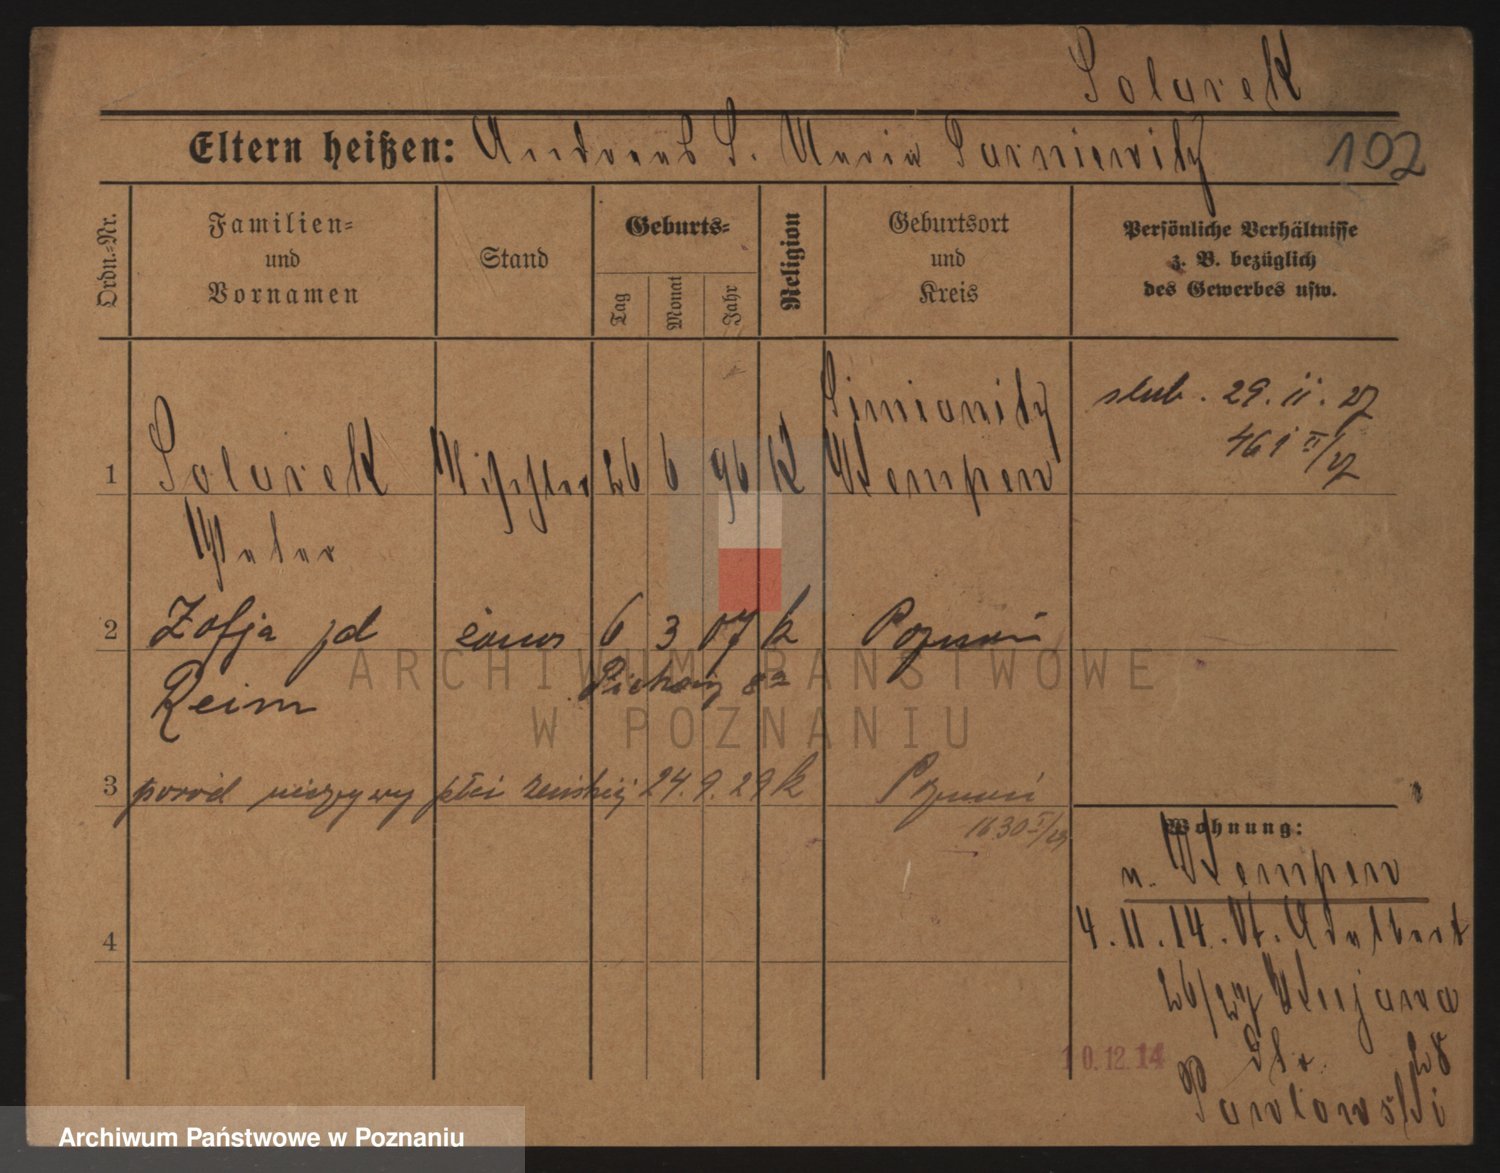 Solarek
Eltern heißen: Andreas S. Maria Parniewitz
102
Ordn.-Nr.
Familien-
und
Vornamen
Stand
Geburts-
Tag
Monat
Jahr
Religion
Geburtsort
und
Kreis
Persönliche Verhältnisse
z. B. bezüglich
des Gewerbes usw.
1 Solarek 26 6 96 K
Kempen
Peter
ślub. 29. 11. 27
461 II/27
2 Zofja żona 6 3 07 k Poznań
Reim
3 poród nieżywy płci żeńskiej 24. 9. 29 k Poznań
1630
4
Wohnung:
n. Kempen
4. 11. 14. St. Adalbert
26/27 Kujawa
28
Pawlowski
10.12.14
ARCHIWUM PAŃSTWOWE
W POZNANIU
Archiwum Państwowe w Poznaniu